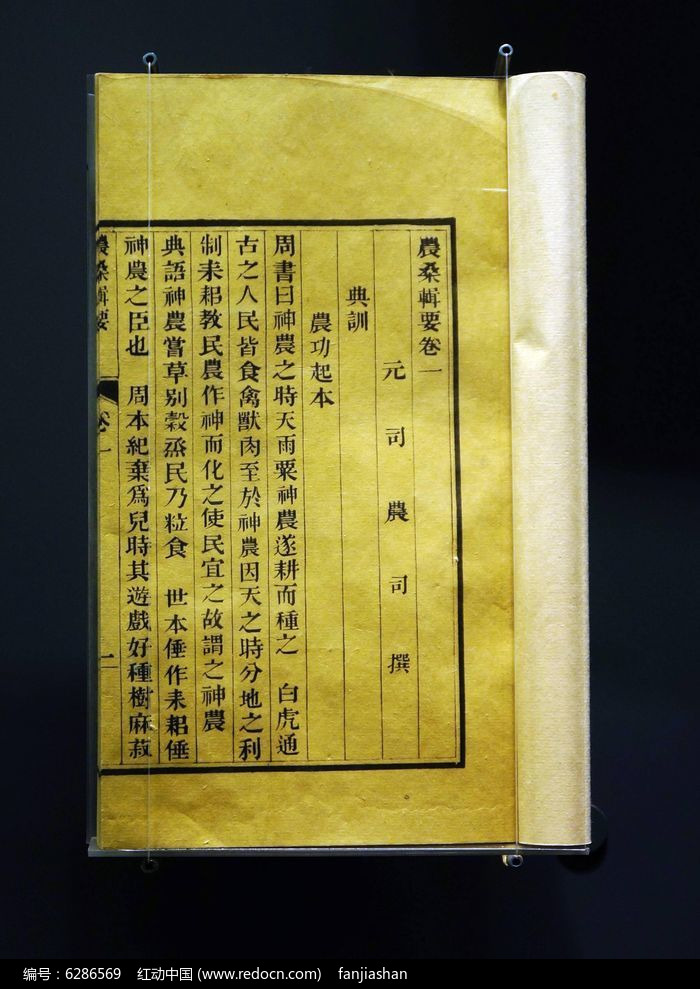 農桑輯要卷一
元司農司撰
典訓
農功起本
周書曰神農之時天雨粟神農遂耕而種之　白虎通
古之人民皆食禽獸肉至於神農因天之時分地之利
制耒耜教民農作神而化之使民宜之故謂之神農
典語神農嘗草别穀烝民乃粒食　世本倕作耒耜倕
神農之臣也　周本紀棄爲兒時其遊戲好種樹麻菽
農桑輯要　卷一　一
编号：6286569　红动中国 (www.redocn.com)　fanjiashan